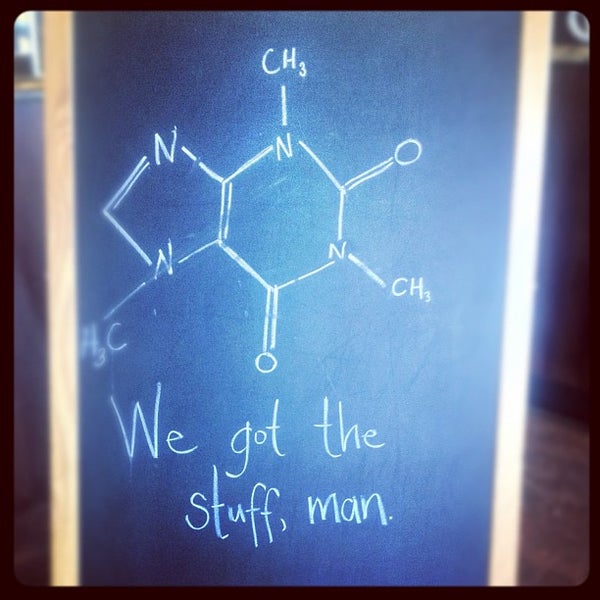 CH₃
N N O
N N
H₃C CH₃
O
We got the
stuff, man.